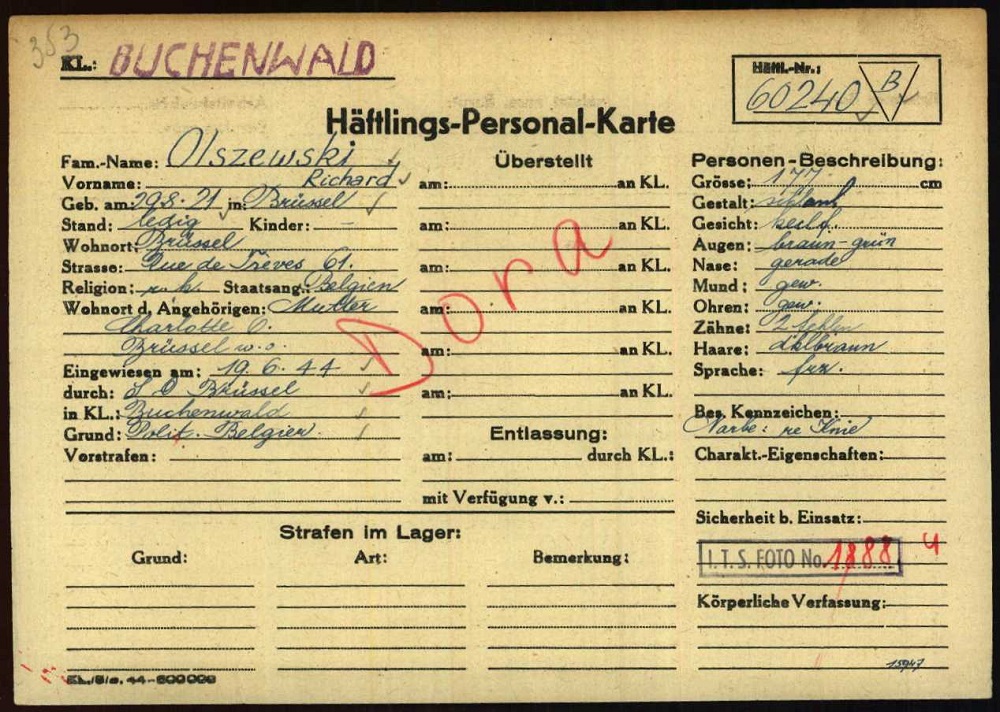 353
KL.: BUCHENWALD
Häftl.-Nr.:
60240 B
Häftlings-Personal-Karte
Fam.-Name: Olszewski
Vorname: Richard
Geb. am: 29.8.21 in: Brüssel
Stand: ledig Kinder: —
Wohnort: Brüssel
Strasse: Rue de Trèves 61.
Religion: r. k. Staatsang.: Belgien
Wohnort d. Angehörigen: Mutter
Charlotte O.
Brüssel w.o.
Eingewiesen am: 19.6.44
durch: S D Brüssel
in KL.: Buchenwald
Grund: Polit. Belgier.
Vorstrafen:
Überstellt
am: an KL.
am: an KL.
am: an KL.
am: an KL.
am: an KL.
am: an KL.
Dora
Entlassung:
am: durch KL.:
mit Verfügung v.:
Personen-Beschreibung:
Grösse: 177 cm
Gestalt: schlank
Gesicht:
Augen: braun-grün
Nase: gerade
Mund: gew.
Ohren: gew.
Zähne: 2 fehlen
Haare: dklbraun
Sprache: frz.
Bes. Kennzeichen:
Narbe: re Knie
Charakt.-Eigenschaften:
Sicherheit b. Einsatz:
I.T.S. FOTO No. 1888 4
Körperliche Verfassung:
15947
Strafen im Lager:
Grund: Art: Bemerkung: